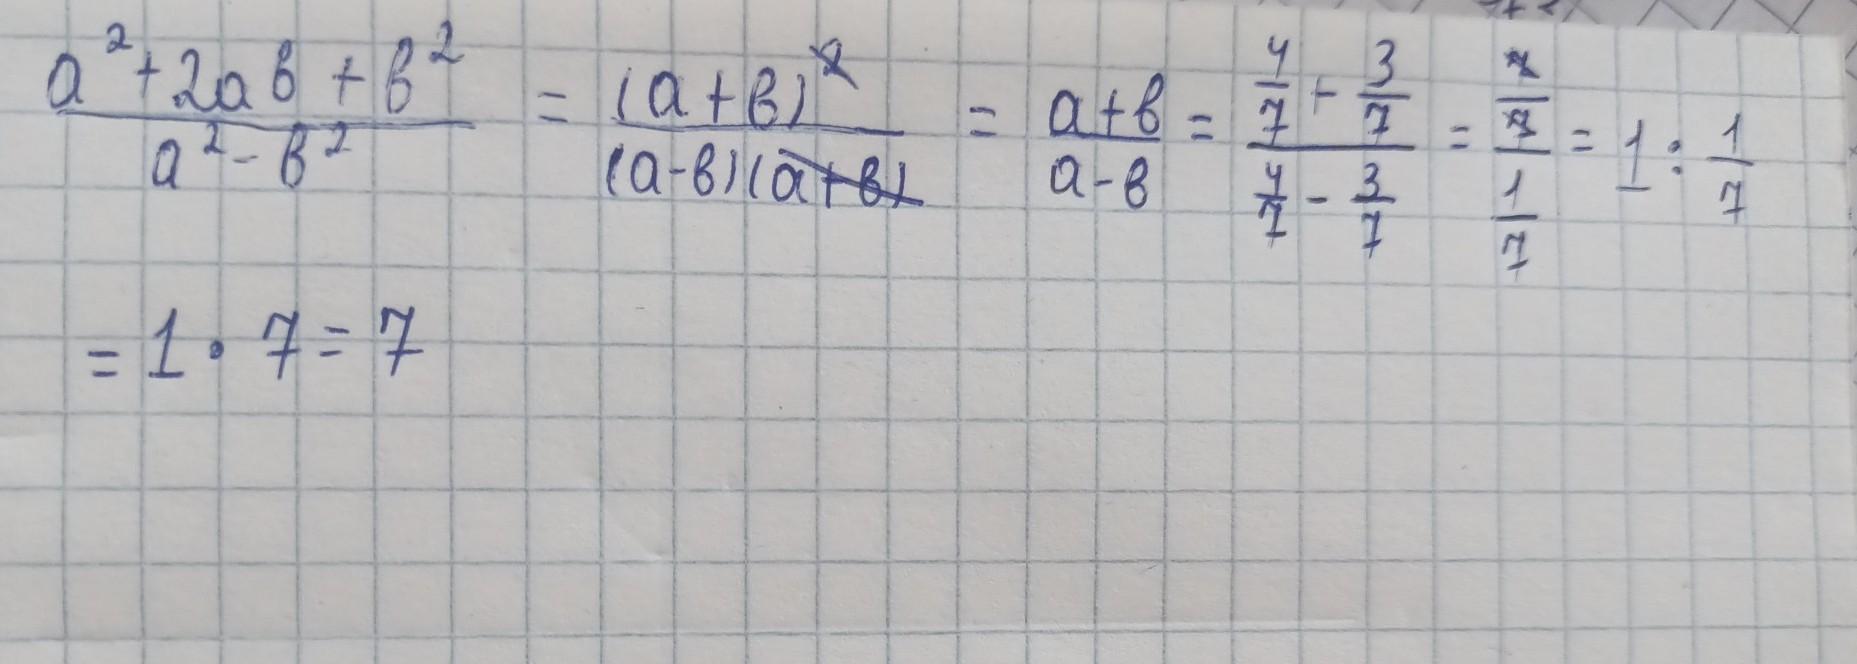 (a²+2ab+b²)/(a²-b²) = (a+b)²/((a-b)(a+b)) = (a+b)/(a-b) = (4/7+3/7)/(4/7-3/7) = (7/7)/(1/7) = 1:1/7
= 1·7=7